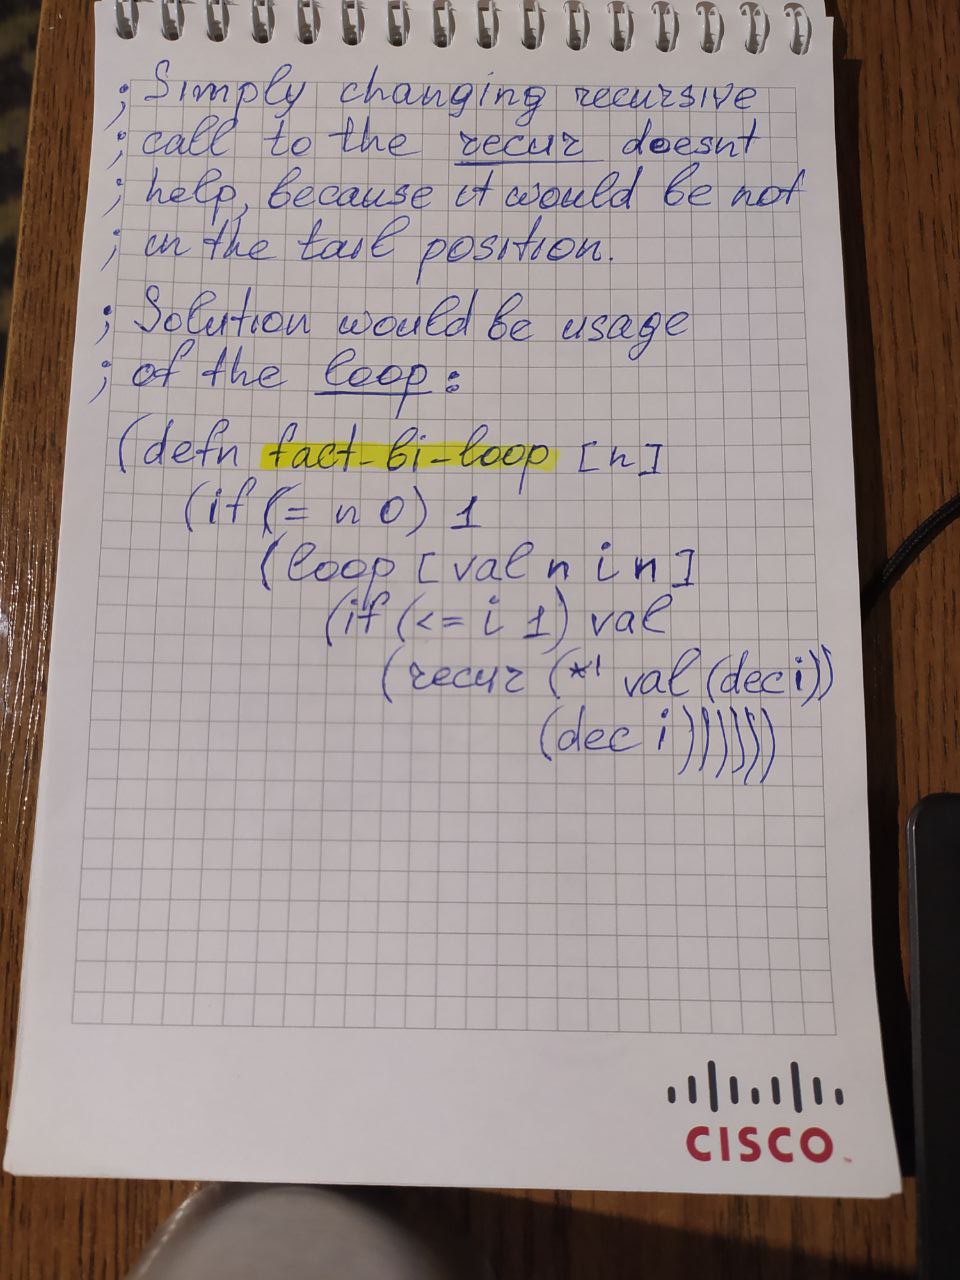 ; Simply changing recursive
; call to the recur doesnt
; help, because it would be not
; in the tail position.
; Solution would be usage
; of the loop:
(defn fact-bi-loop [n]
(if (= n 0) 1
(loop [val n i n]
(if (<= i 1) val
(recur (*' val (dec i))
(dec i))))))
CISCO